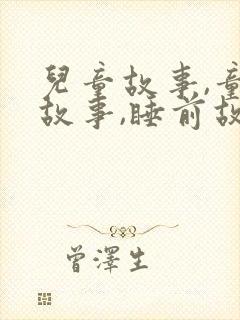 兒童故事,童
故事,睡前故
曾澤生